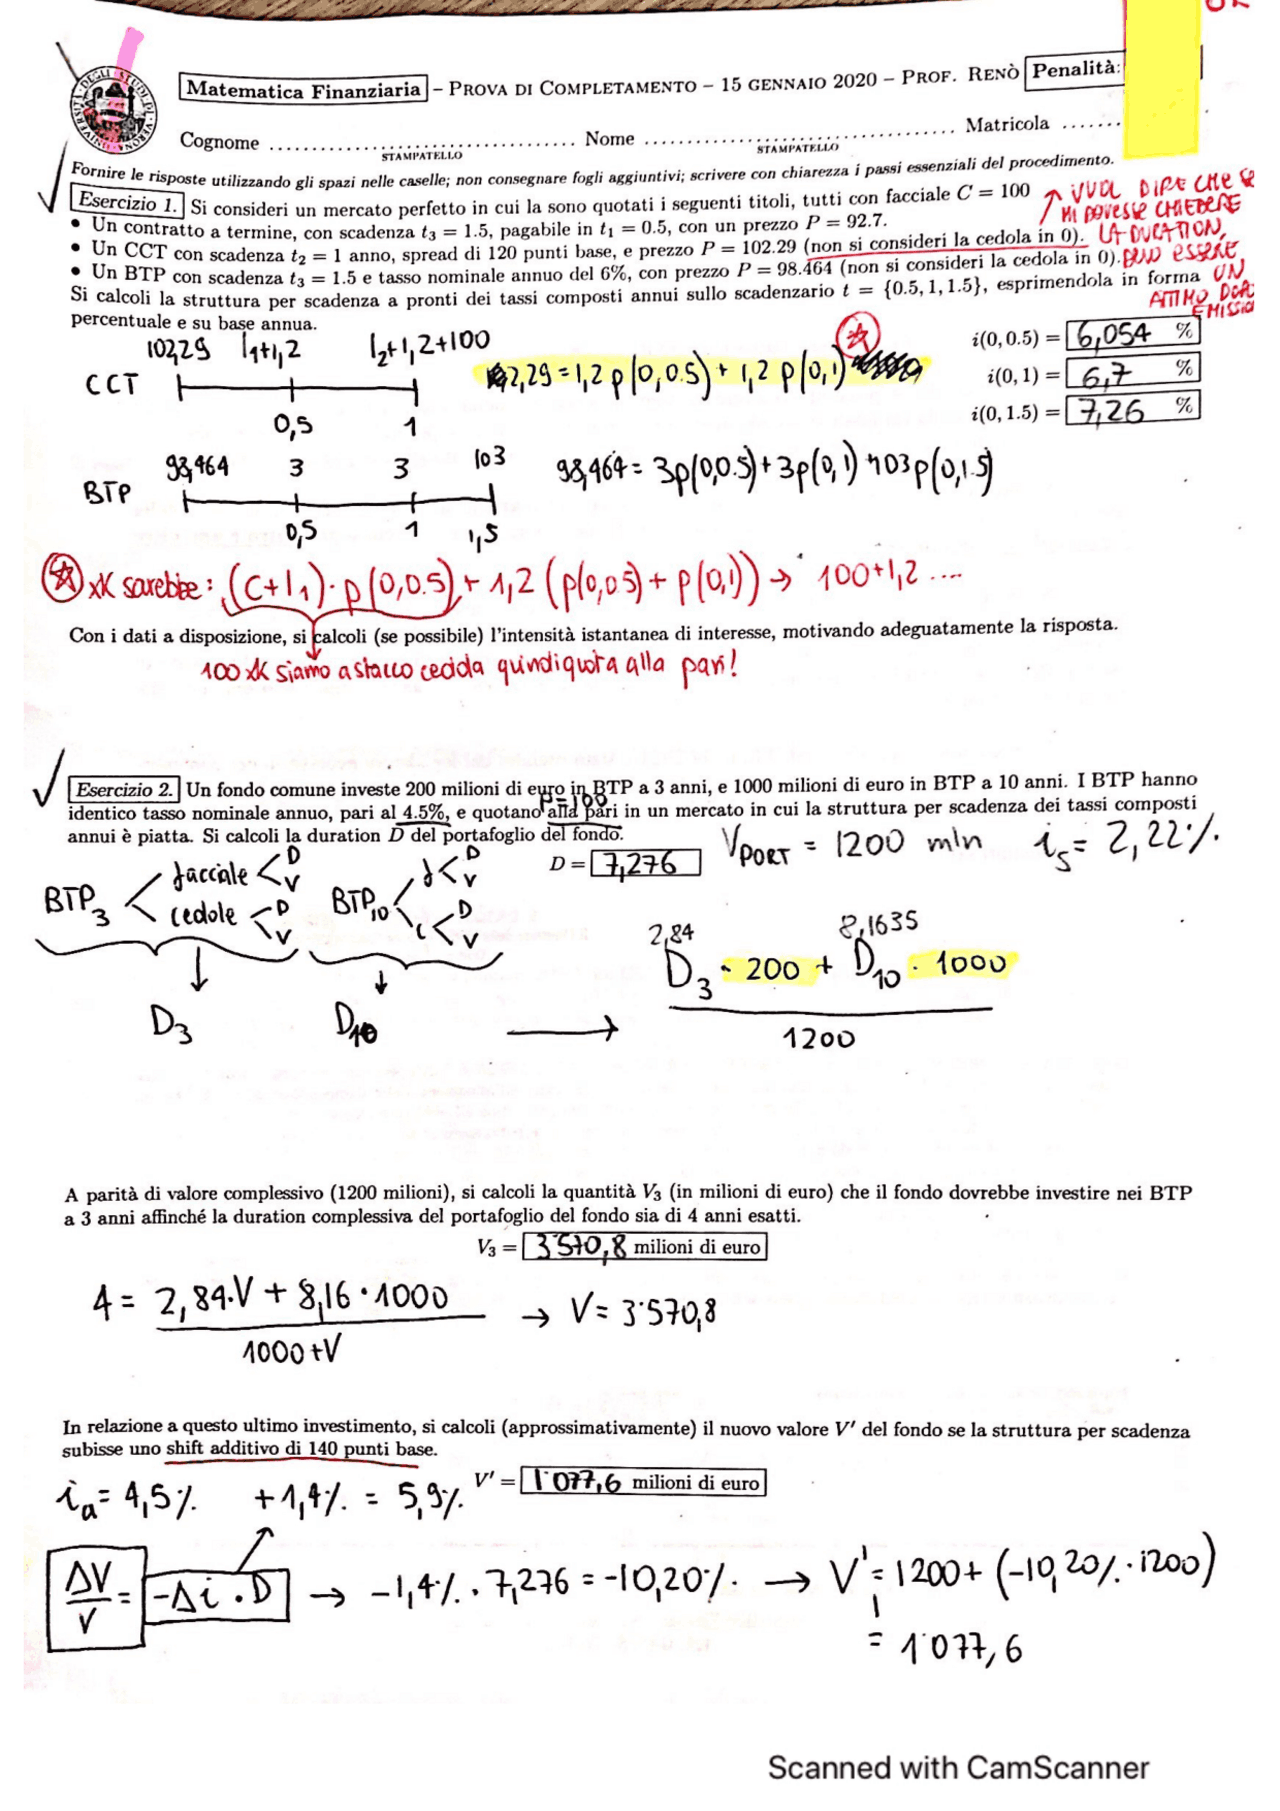 Matematica Finanziaria – PROVA DI COMPLETAMENTO – 15 GENNAIO 2020 – PROF. RENÒ Penalità:
Cognome .................................. Nome .................................. Matricola .......
STAMPATELLO STAMPATELLO
Fornire le risposte utilizzando gli spazi nelle caselle; non consegnare fogli aggiuntivi; scrivere con chiarezza i passi essenziali del procedimento.
Esercizio 1. Si consideri un mercato perfetto in cui la sono quotati i seguenti titoli, tutti con facciale C = 100
• Un contratto a termine, con scadenza t₃ = 1.5, pagabile in t₁ = 0.5, con un prezzo P = 92.7.
• Un CCT con scadenza t₂ = 1 anno, spread di 120 punti base, e prezzo P = 102.29 (non si consideri la cedola in 0).
• Un BTP con scadenza t₃ = 1.5 e tasso nominale annuo del 6%, con prezzo P = 98.464 (non si consideri la cedola in 0).
Si calcoli la struttura per scadenza a pronti dei tassi composti annui sullo scadenzario t = {0.5, 1, 1.5}, esprimendola in forma
percentuale e su base annua.
↗ VUOL DIRE CHE SE
MI DOVESSE CHIEDERE
LA DURATION,
PUÒ ESSERE
UN
ATTIMO DOPO
EMISSIO
i(0, 0.5) = 6,054 %
i(0, 1) = 6,7 %
i(0, 1.5) = 7,26 %
102,29 I₁+1,2 I₂+1,2+100
CCT
0,5 1
2,29 = 1,2 p(0,0.5) + 1,2 p(0,1)
98,464 3 3 103
BTP
0,5 1 1,5
98,464 = 3p(0,0.5) + 3p(0,1) + 103p(0,1.5)
xK sarebbe: (C+I₁)·p(0,0.5) + 1,2 (p(0,0.5) + p(0,1)) → 100+1,2 ....
Con i dati a disposizione, si calcoli (se possibile) l'intensità istantanea di interesse, motivando adeguatamente la risposta.
100 xK siamo a stacco cedola quindi quota alla pari!
Esercizio 2. Un fondo comune investe 200 milioni di euro in BTP a 3 anni, e 1000 milioni di euro in BTP a 10 anni. I BTP hanno
P=100
identico tasso nominale annuo, pari al 4.5%, e quotano alla pari in un mercato in cui la struttura per scadenza dei tassi composti
annui è piatta. Si calcoli la duration D del portafoglio del fondo.
D = 7,276
V PORT = 1200 mln i s = 2,22%.
BTP₃ facciale D V cedole D V
BTP₁₀ f D V c D V
D₃ D₁₀ →
2,84 8,1635
D₃ · 200 + D₁₀ · 1000
1200
A parità di valore complessivo (1200 milioni), si calcoli la quantità V₃ (in milioni di euro) che il fondo dovrebbe investire nei BTP
a 3 anni affinché la duration complessiva del portafoglio del fondo sia di 4 anni esatti.
V₃ = 3'570,8 milioni di euro
4 = 2,84·V + 8,16·1000 → V = 3'570,8
1000+V
In relazione a questo ultimo investimento, si calcoli (approssimativamente) il nuovo valore V′ del fondo se la struttura per scadenza
subisse uno shift additivo di 140 punti base.
V′ = 1'077,6 milioni di euro
i a = 4,5% +1,4% = 5,9%
ΔV/V = -Δi · D → -1,4% · 7,276 = -10,20% → V' = 1200 + (-10,20% · 1200)
= 1'077,6
Scanned with CamScanner